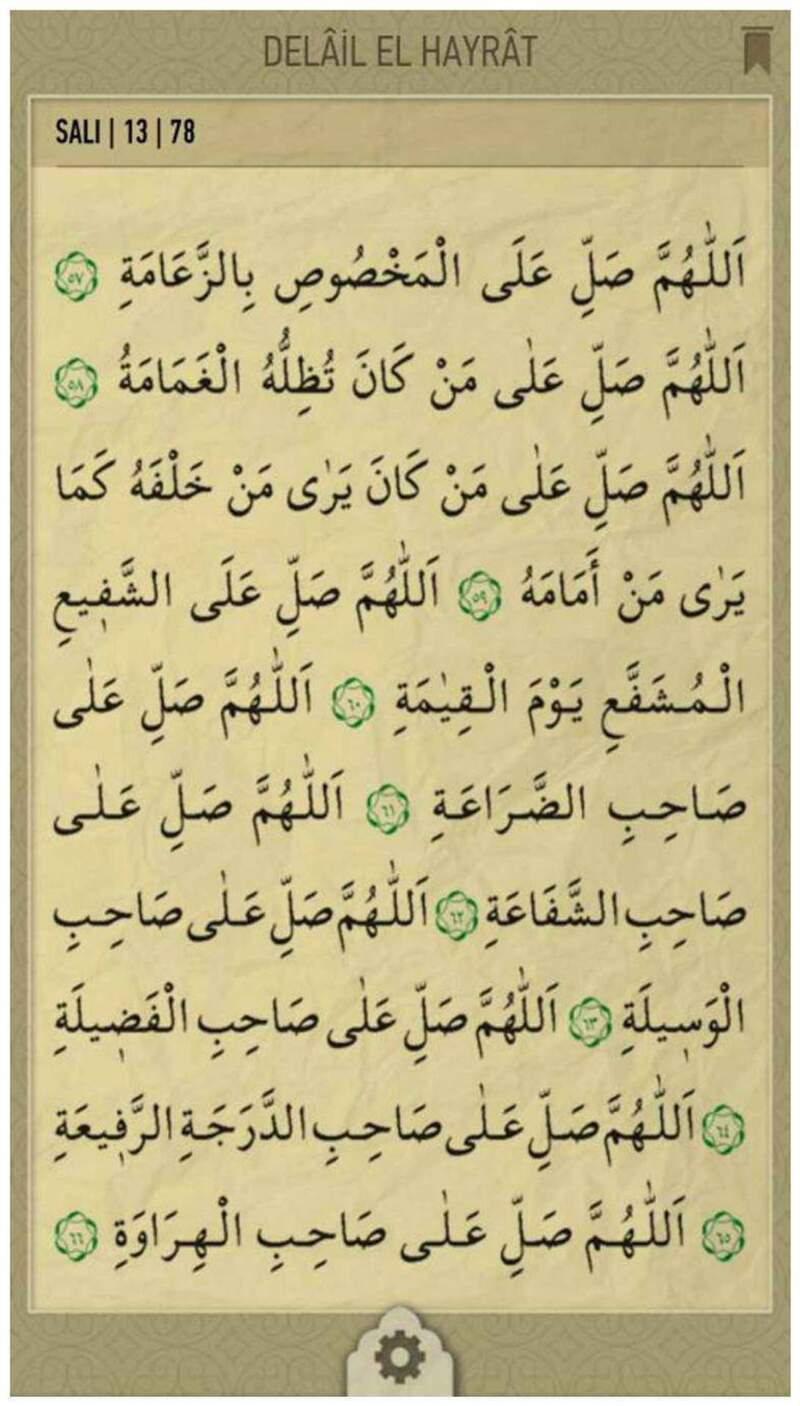 DELÂİL EL HAYRÂT
SALI | 13 | 78
اَللّٰهُمَّ صَلِّ عَلَى الْمَخْصُوصِ بِالزَّعَامَةِ ٥٧
اَللّٰهُمَّ صَلِّ عَلٰى مَنْ كَانَ تُظِلُّهُ الْغَمَامَةُ ٥٨
اَللّٰهُمَّ صَلِّ عَلٰى مَنْ كَانَ يَرٰى مَنْ خَلْفَهُ كَمَا
يَرٰى مَنْ أَمَامَهُ ٥٩ اَللّٰهُمَّ صَلِّ عَلَى الشَّفٖيعِ
الْمُشَفَّعِ يَوْمَ الْقِيٰمَةِ ٦٠ اَللّٰهُمَّ صَلِّ عَلٰى
صَاحِبِ الضَّرَاعَةِ ٦١ اَللّٰهُمَّ صَلِّ عَلٰى
صَاحِبِ الشَّفَاعَةِ ٦٢ اَللّٰهُمَّ صَلِّ عَلٰى صَاحِبِ
الْوَسٖيلَةِ ٦٣ اَللّٰهُمَّ صَلِّ عَلٰى صَاحِبِ الْفَضٖيلَةِ
٦٤ اَللّٰهُمَّ صَلِّ عَلٰى صَاحِبِ الدَّرَجَةِ الرَّفٖيعَةِ
٦٥ اَللّٰهُمَّ صَلِّ عَلٰى صَاحِبِ الْهِرَاوَةِ ٦٦